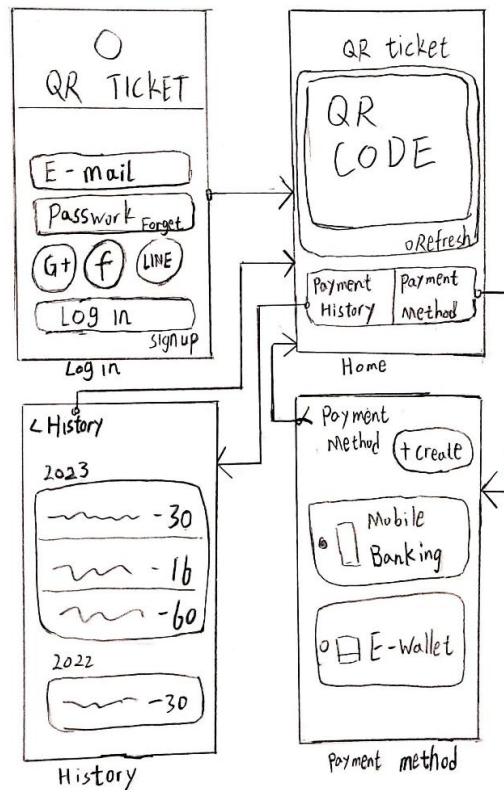 QR TICKET
E-mail
Passwork Forget
G+ f LINE
Log in
sign up
Log in
QR ticket
QR
CODE
Refresh
Payment
History
Payment
Method
Home
< History
2023
-30
-16
-60
2022
-30
History
< Payment
Method
+ Create
Mobile
Banking
E-Wallet
Payment method